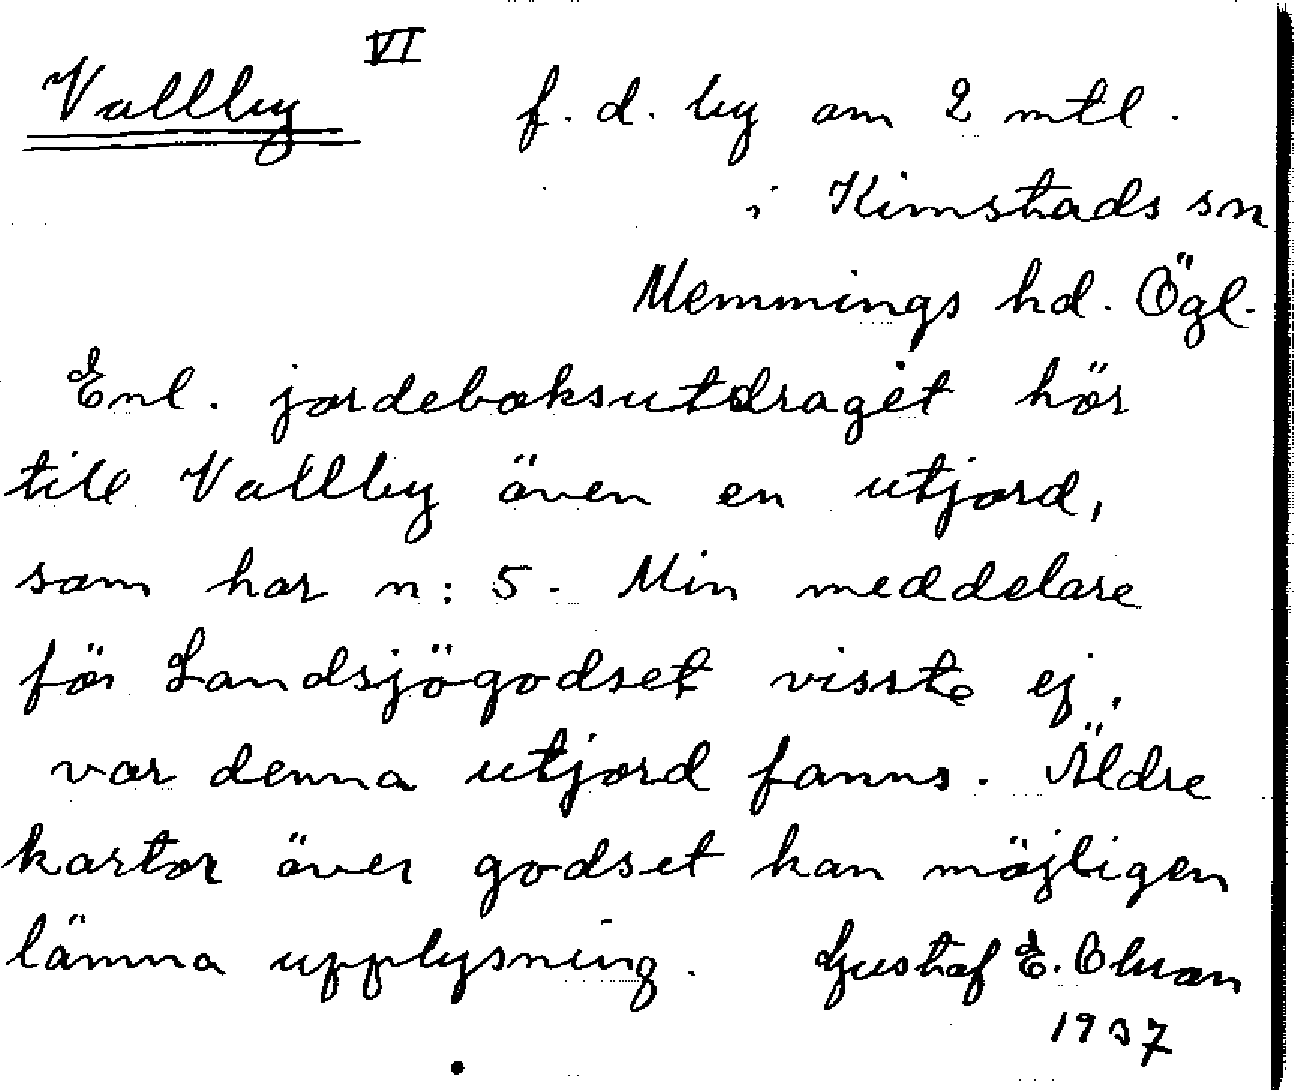 VI
Vallby f. d. by om 2 mtl.
i Kimstads sn
Memmings hd. Ögl.
Enl. jordeboksutdraget hör
till Vallby även en utjord,
som har n:5. Min meddelare
för Landsjögodset visste ej,
var denna utjord fanns. Äldre
kartor över godset kan möjligen
lämna upplysning. Gustaf E. Olsson
1937